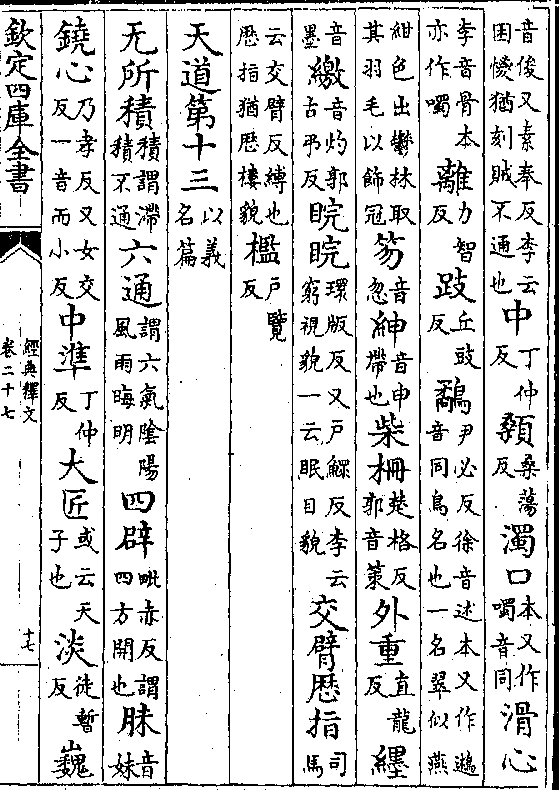 音俊又素奉反李云困惾猶刻賊不通也中丁仲反顙桑蕩反濁口本又作噣音同滑心
李音骨本亦作噣離力智反跂丘豉反鷸尹必反徐音述本又作鷸音同鳥名也一名翠似燕
紺色出鬱林取其羽毛以飾冠笏音忽紳音申帶也柴柵楚格反郭音策外重直龍反纆
音墨繳音灼郭古弔反睆睆環版反又戶鰥反李云窮視貌一云眠目貌交臂厯指司馬
云交臂反縛也厯指猶厯樓貌檻戶覽反
天道第十三以義名篇
无所積積謂滯積不通六通謂六氣陰陽風雨晦明四辟毗赤反謂四方開也昧音妹
鐃心乃孝反又女交反一音而小反中準丁仲反大匠或云天子也淡徒暫反巍
欽定四庫全書
經典釋文
卷二十七
十七